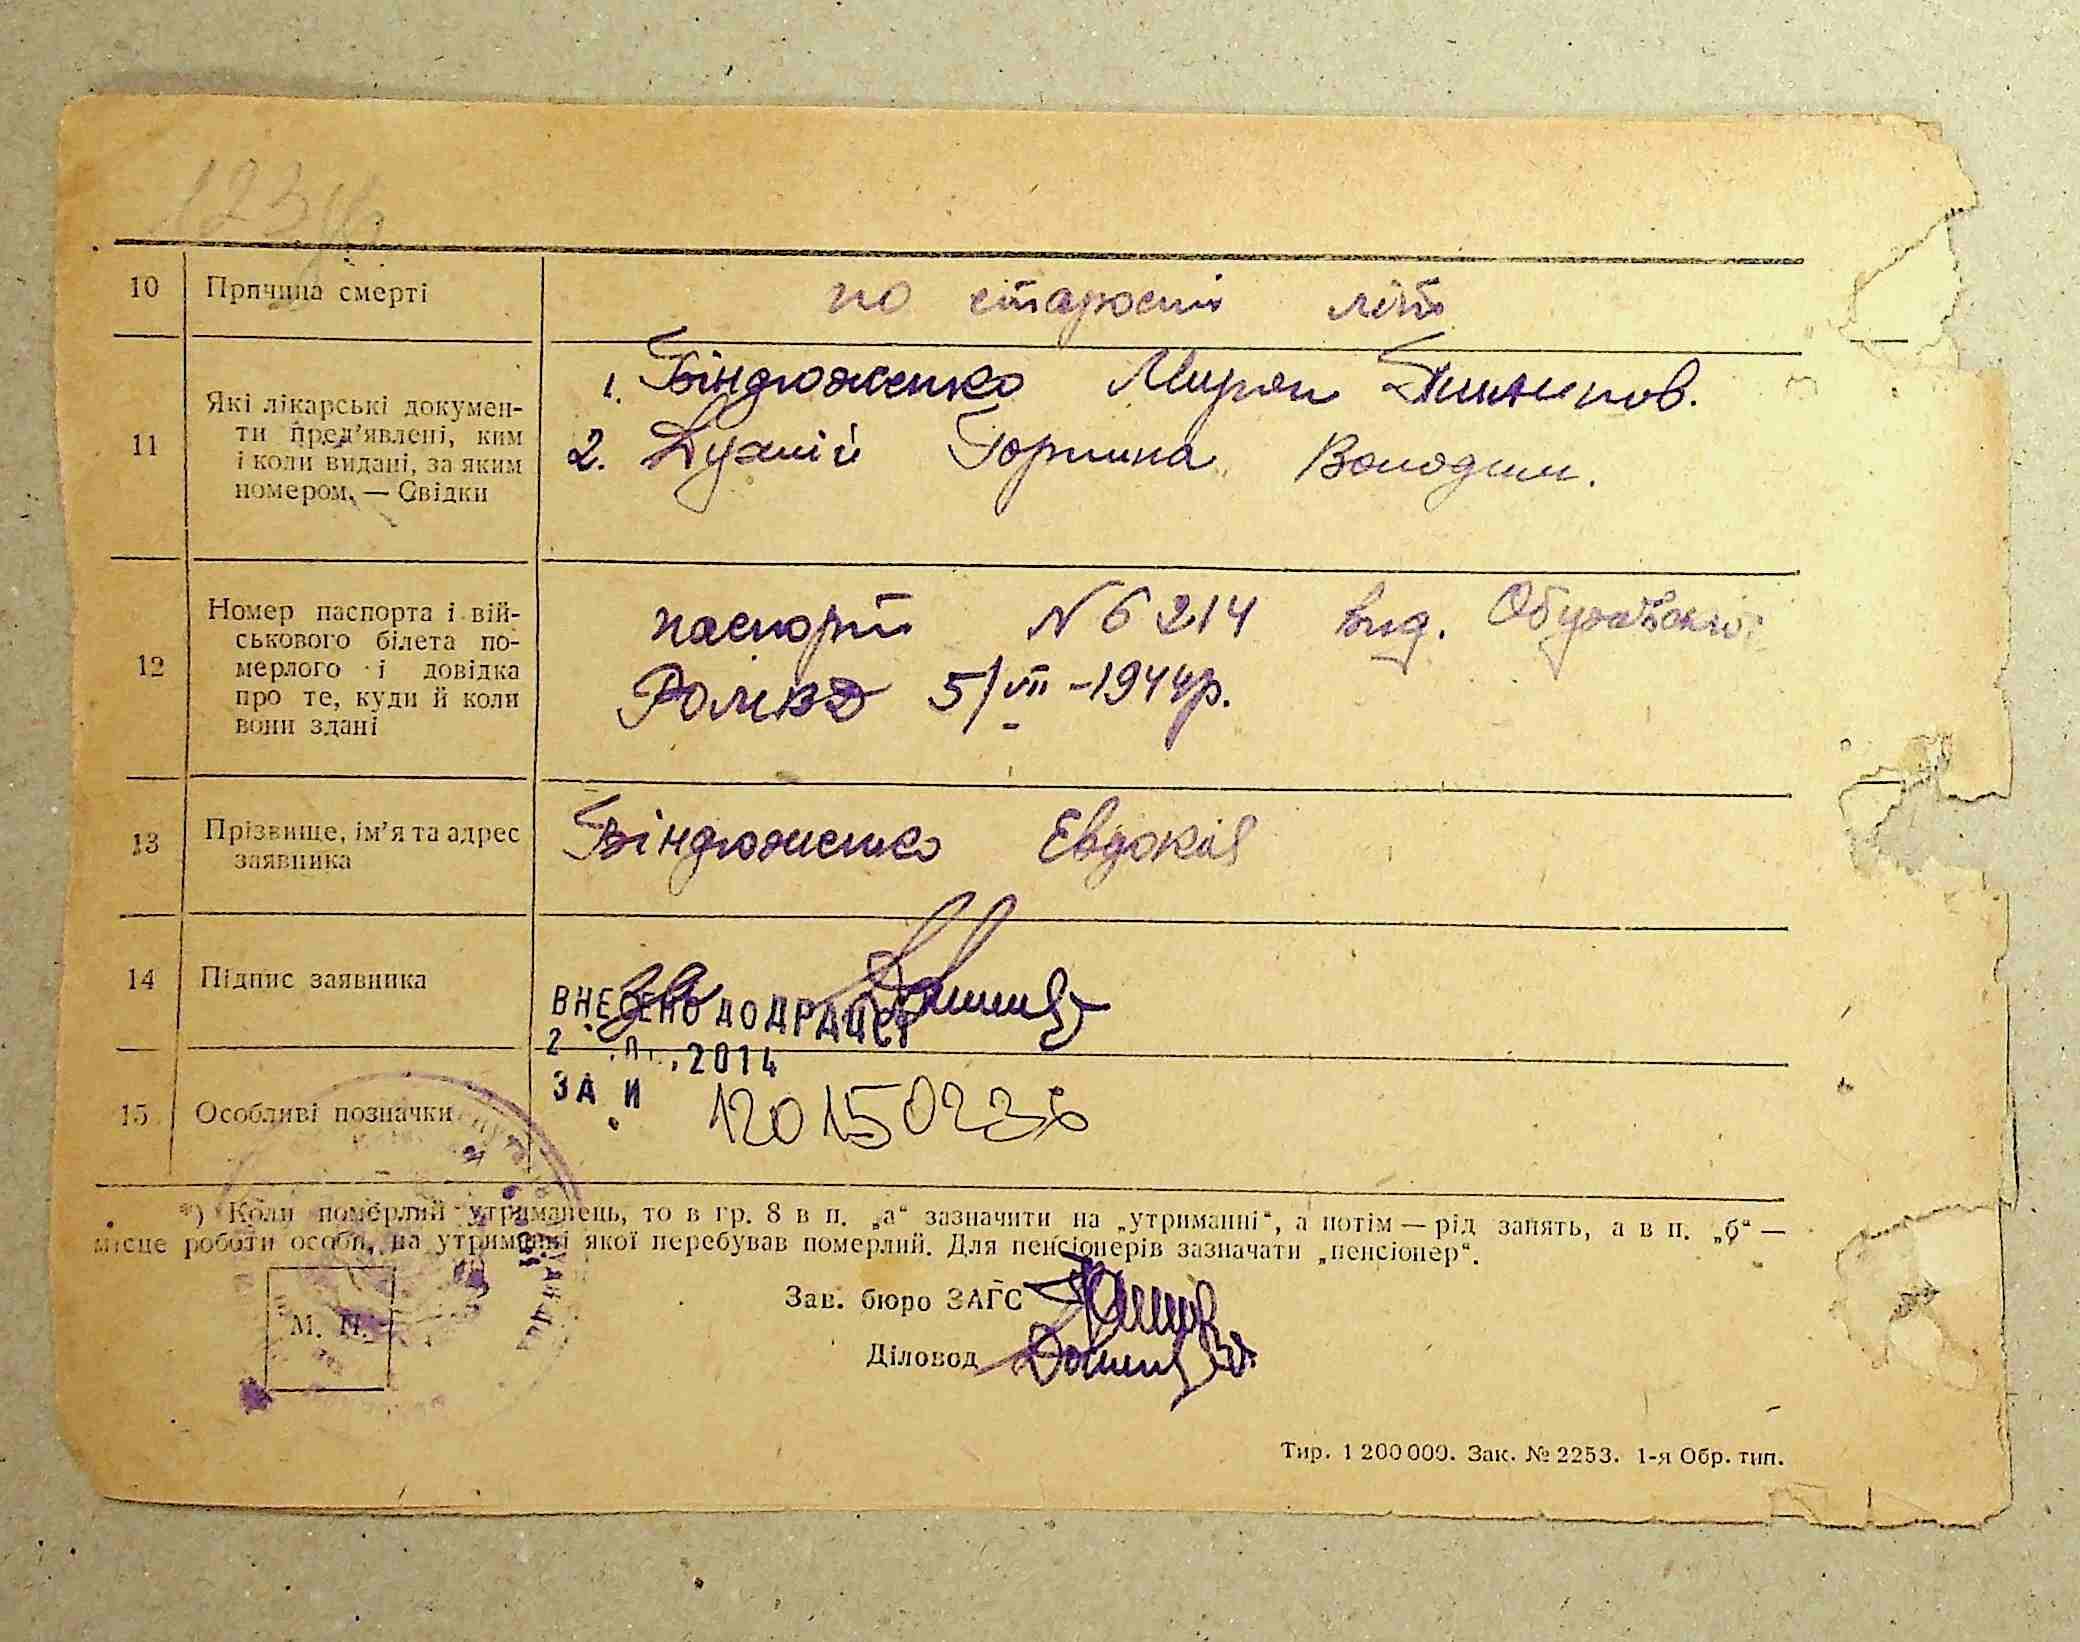 10 Причина смерті по старості літ
11 Які лікарські докумен-
ти пред'явлені, ким
і коли видані, за яким
номером. — Свідки
1. Біндюженко Мирон
2. Володим.
12 Номер паспорта і вій-
ськового білета по-
мерлого і довідка
про те, куди й коли
вони здані
паспорт N 6214 вид.
5/VII-1944р.
13 Прізвище, ім'я та адрес
заявника
Біндюженко Евдокія
14 Підпис заявника за
ВНЕСЕНО ДО ДРАЦСГ
2014
15 Особливі позначки
ЗА N 120150236
*) Коли померлий утриманець, то в гр. 8 в п. „а“ зазначити на „утриманні“, а потім — рід занять, а в п. „б“ —
місце роботи особи, на утриманні якої перебував померлий. Для пенсіонерів зазначати „пенсіонер“.
М. П.
Зав. бюро ЗАГС
Діловод
Тир. 1 200 000. Зак. № 2253. 1-я Обр. тип.